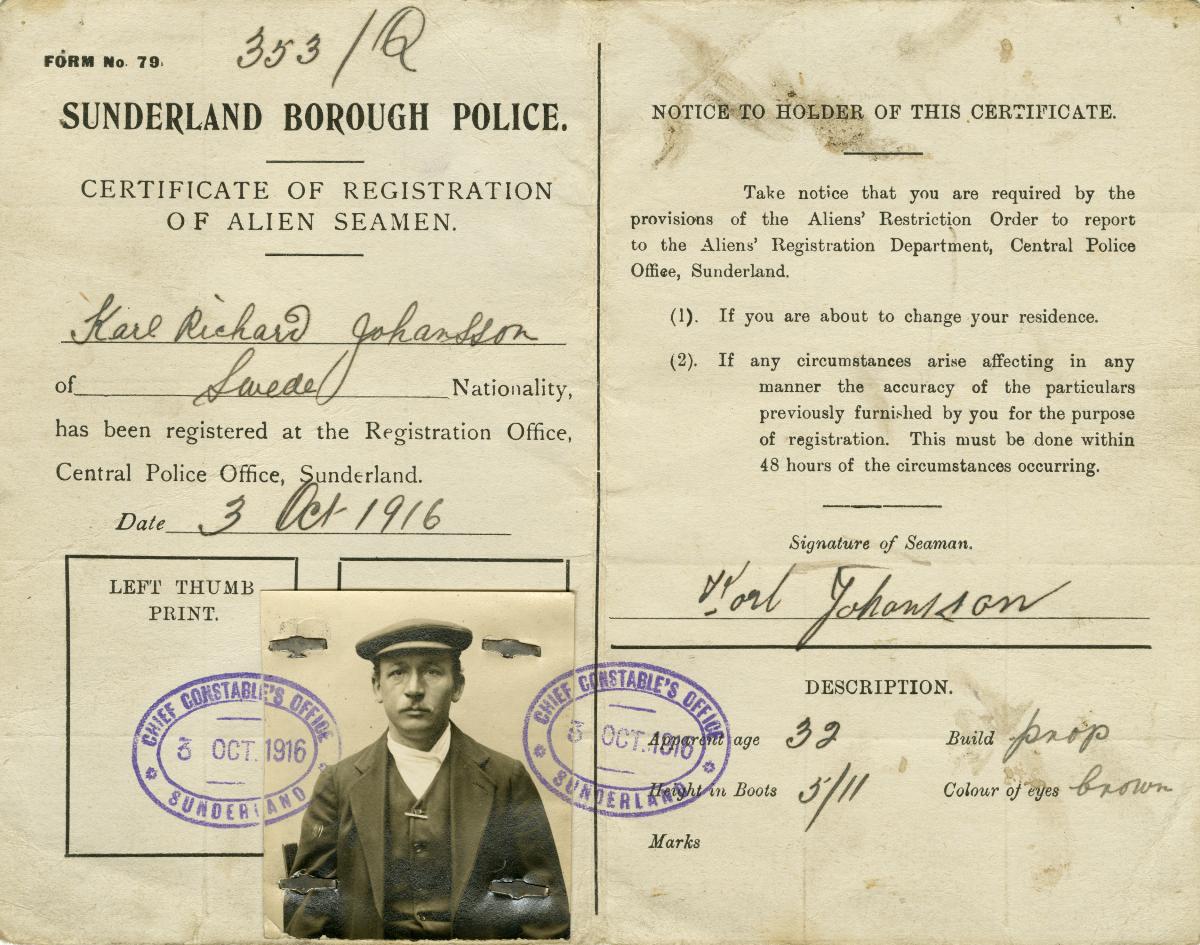 353/Q
FORM No. 79.
SUNDERLAND BOROUGH POLICE.
CERTIFICATE OF REGISTRATION
OF ALIEN SEAMEN.
Karl Richard Johansson
of Swede Nationality,
has been registered at the Registration Office,
Central Police Office, Sunderland.
Date 3 Oct 1916
LEFT THUMB
PRINT.
CHIEF CONSTABLE'S OFFICE
3 OCT. 1916
SUNDERLAND
NOTICE TO HOLDER OF THIS CERTIFICATE.
Take notice that you are required by the
provisions of the Aliens' Restriction Order to report
to the Aliens' Registration Department, Central Police
Office, Sunderland.
(1). If you are about to change your residence.
(2). If any circumstances arise affecting in any
manner the accuracy of the particulars
previously furnished by you for the purpose
of registration. This must be done within
48 hours of the circumstances occurring.
Signature of Seaman.
Karl Johansson
CHIEF CONSTABLE'S OFFICE
3 OCT. 1916
SUNDERLAND
DESCRIPTION.
Apparent age 32 Build prop
Height in Boots 5/11 Colour of eyes brown
Marks